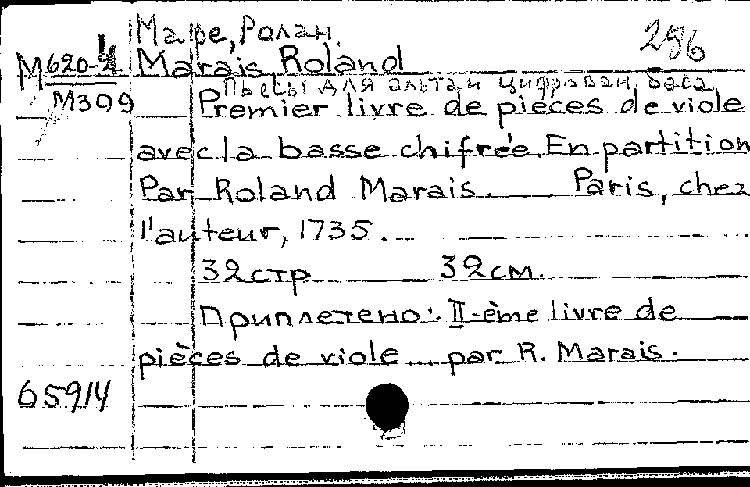 Маре, Ролан.
296
М 620-4 Marais Roland
Пьесы для альта и цифрован. баса
М309 Premier livre de pièces de viole
avec la basse chifrée. En partition
Par Roland Marais. Paris, chez
l'auteur, 1735.
32 стр 32 см.
Приплетено: II-ème livre de
pièces de viole... par R. Marais.
65914